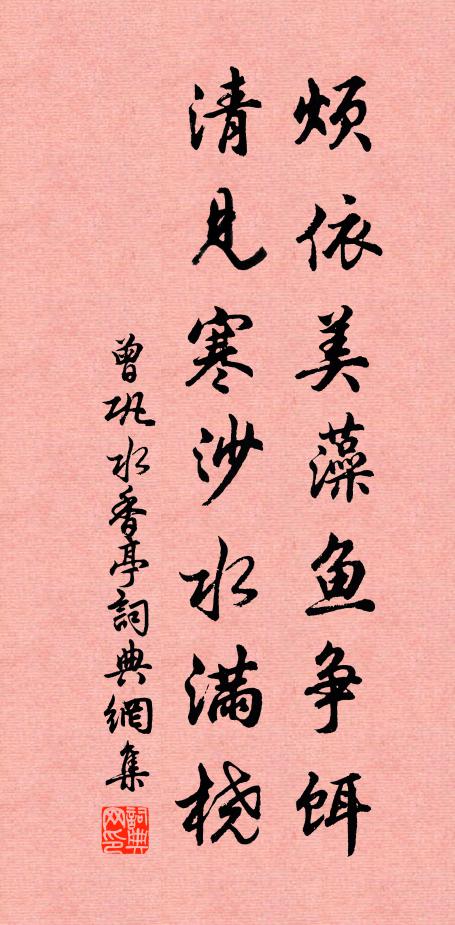 烦依美藻鱼争饵
清见寒沙水满桡
曾巩水香亭词典網集
詞典网印